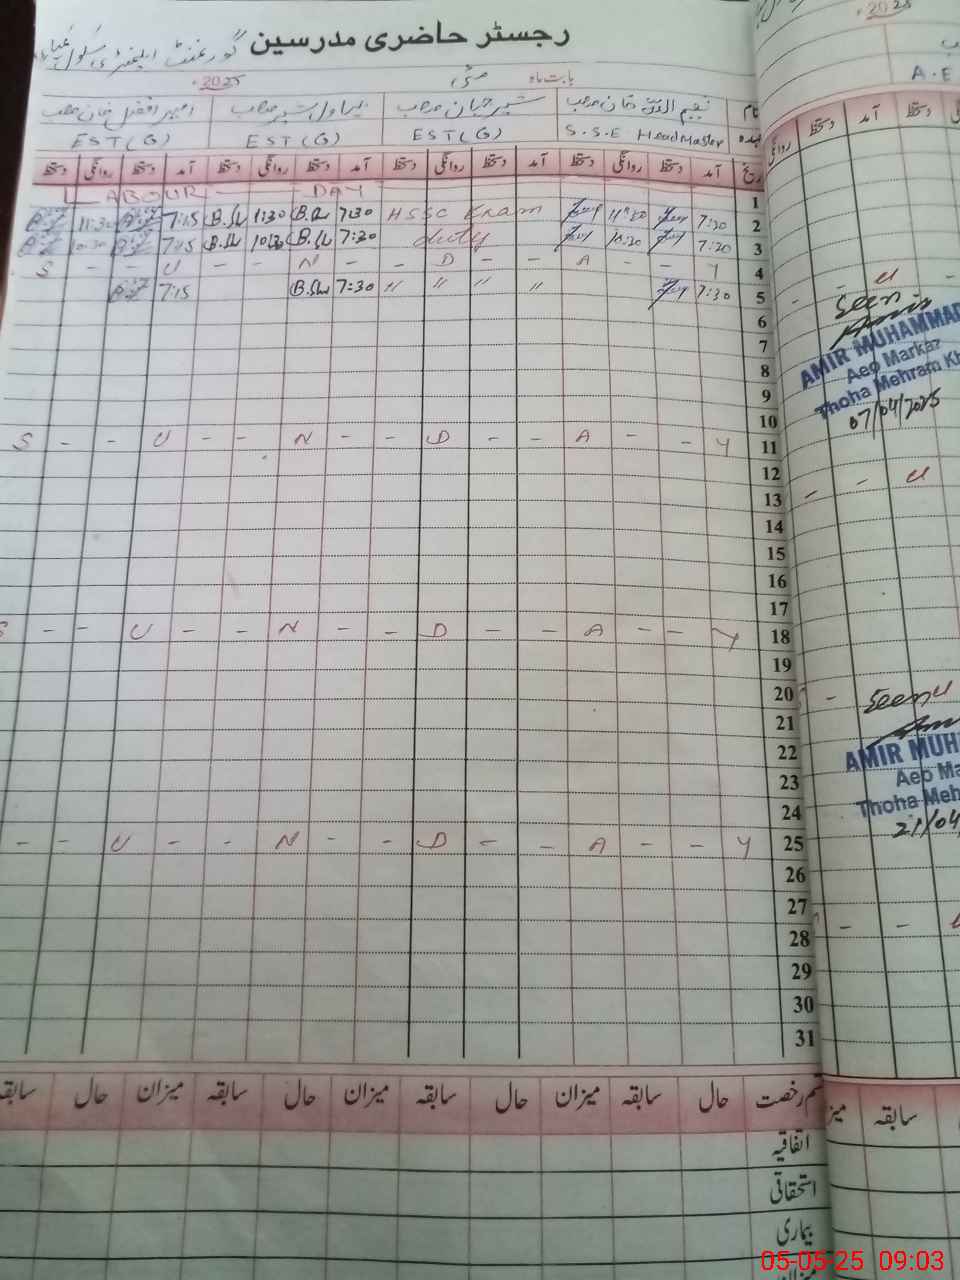 رجسٹر حاضری مدرسین
گورنمنٹ ایلیمنٹری سکول
بابت ماہ مئی 2025
نام نجیم اللہ خان صاحب شیر جہان صاحب بہاول شیر صاحب امیر افضل خان صاحب
عہدہ S.S.E HeadMaster EST(G) EST(G) EST(G)
تاریخ آمد دستخط روانگی دستخط آمد دستخط روانگی دستخط آمد دستخط روانگی دستخط آمد دستخط روانگی دستخط
1 LABOUR DAY
2 7:30 11:30 HSSC Exam 7:30 B.Sh 1:30 B.Sh 7:15 11:30
3 7:30 10:30 duty 7:30 B.Sh 10:30 B.Sh 7:15 10:30
4 S - - U - - N - - D - - A - - Y
5 7:30 " " " " 7:30 B.Sh 7:15
6
7
8
9
10
11 S - - U - - N - - D - - A - - Y
12
13
14
15
16
17
18 S - - U - - N - - D - - A - - Y
19
20
21
22
23
24
25 - - U - - N - - D - - A - - Y
26
27
28
29
30
31
قسم رخصت حال سابقہ میزان حال سابقہ میزان حال سابقہ میزان حال سابقہ
اتفاقیہ
استحقاقی
بیماری
میزان
2025
A.E
دستخط آمد دستخط روانگی
- u -
Seen
Amir
AMIR MUHAMMAD
Aeo Markaz
Thoha Mehram Kh
07/04/2025
- - u
- Seen u
AMIR MUH
Aeo Ma
Thoha Meh
21/04
- -
سابقہ میز
05-05-25 09:03